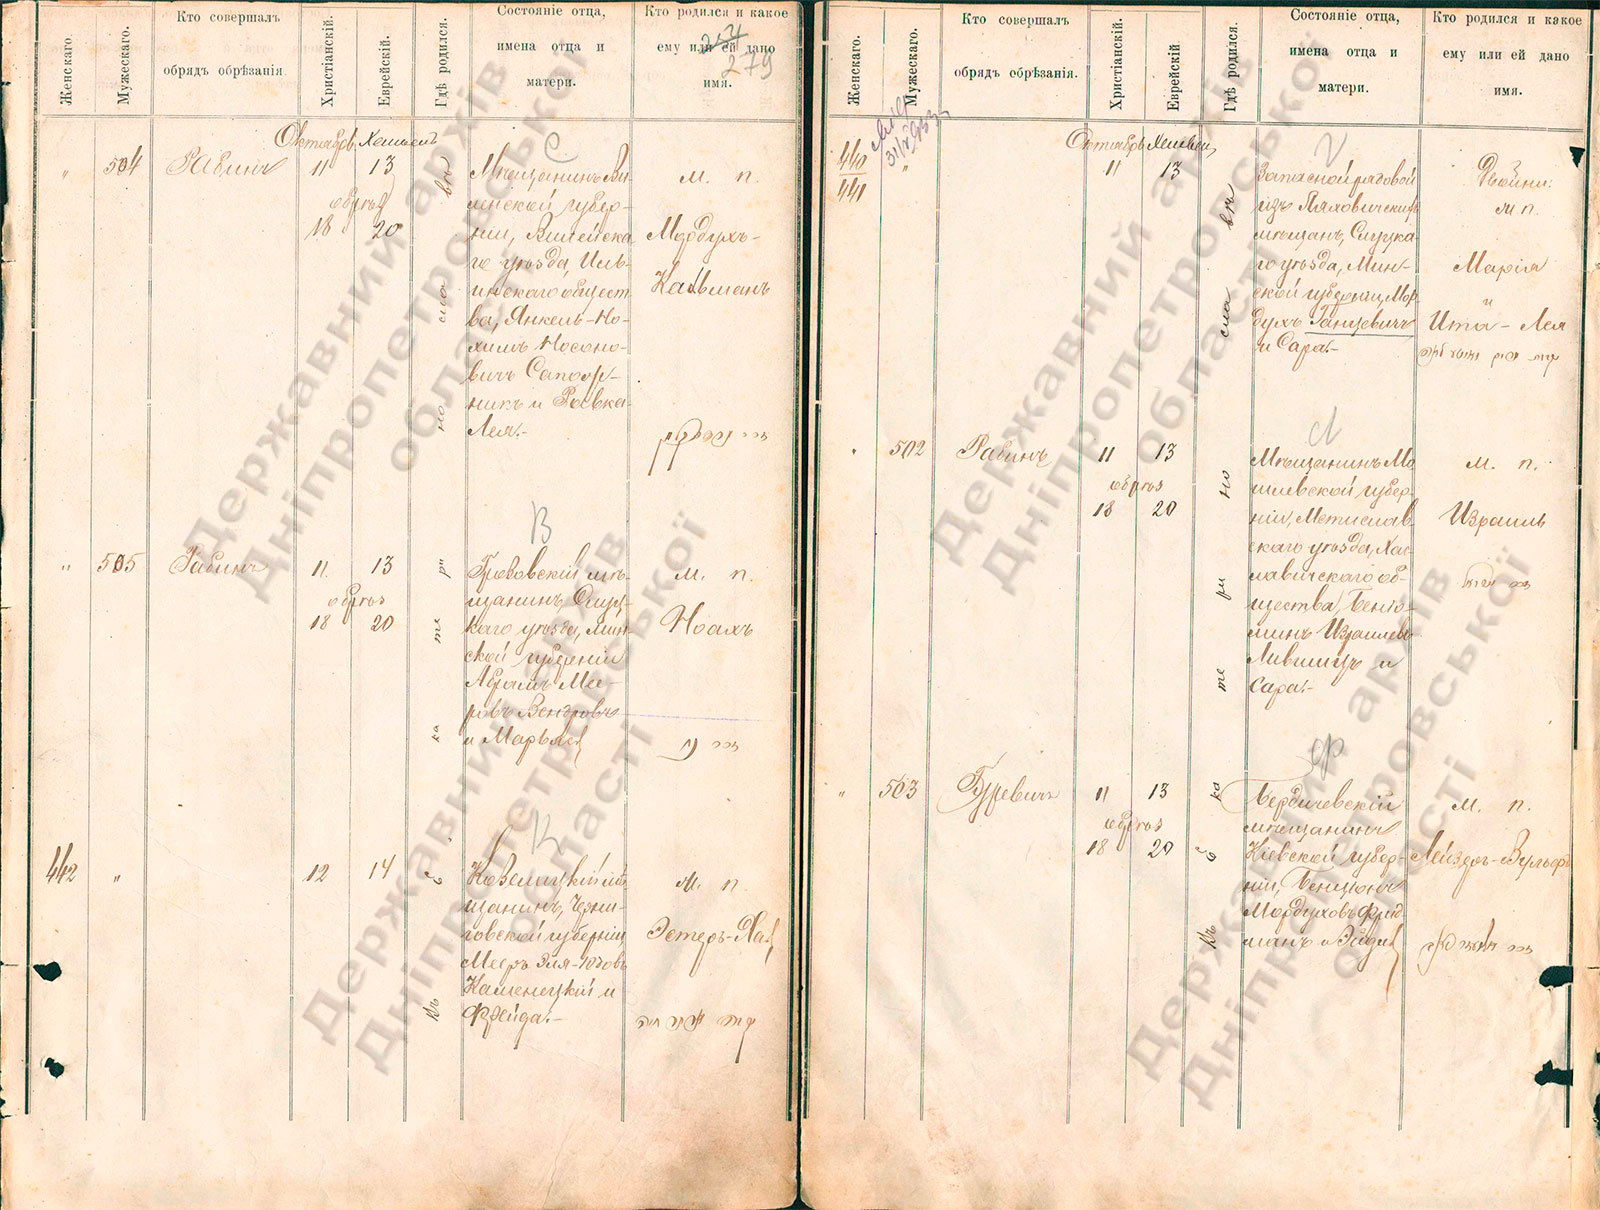 Женскаго.
Мужескаго.
Кто совершалъ
обрядъ обрѣзанія.
Христіанскій.
Еврейскій.
Гдѣ родился.
Состояніе отца,
имена отца и
матери.
Кто родился и какое
ему или ей дано
имя.
279
Октябрь Хешвенъ
С
" 504 Рабинъ 11 13
обрѣз
18 20
Мѣщанинъ Ви-
ленской губер-
ніи, Вилейска-
го уѣзда, Иль-
инскаго общест-
ва, Янкель-Но-
химъ Носоно-
вичъ Сапож-
никъ и Ривка-
Лея.-
м. п.
Мордухъ-
Кальманъ
В
" 505 Рабинъ 11 13
обрѣз
18 20
мѣ-
щанинъ, Слуц-
каго уѣзда, Мин-
ской губерніи
Абрамъ Мее-
ровъ Вендровъ
и Марьяся
м. п.
Ноахъ
К
442 " 12 14
мѣ-
щанинъ, Черни-
говской губерніи
Мееръ Эля-Юдовъ
Каменецкій и
Фрейда.-
м. п.
Эстеръ-Хая
въ
сла
но
ри
те
ка
Е
въ
Женскаго.
Мужескаго.
Кто совершалъ
обрядъ обрѣзанія.
Христіанскій.
Еврейскій
Гдѣ родился.
Состояніе отца,
имена отца и
матери.
Кто родился и какое
ему или ей дано
имя.
Октябрь Хешвен,
Г
440 " 11 13
441
Запасной рядовой
изъ Ляховичскихъ
мѣщанъ, Слуцка-
го уѣзда, Мин-
ской губерніи, Мор-
духъ Ганцевичъ
и Сара.-
Двойни:
м п.
Марія
и
Ита-Лея
Л
" 502 Рабинъ 11 13
обрѣз
18 20
Мѣщанинъ Мо-
гилевской губер-
ніи, Мстислав-
скаго уѣзда, Хос-
лавичскаго об-
щества, Беніо-
минъ Израилевъ
Лившицъ и
Сара.-
м. п.
Израиль
Ф
" 503 Гуревичъ 11 13
обрѣз
18 20
Бердичевскій
мѣщанинъ
Кіевской губер-
ніи, Бенціонъ
Мордуховъ Фрид-
манъ и Эйдля
м. п.
Лейзеръ-Вульфъ
въ
сла
но
ри
те
ка
Е
въ
Державний архів
Дніпропетровської
області